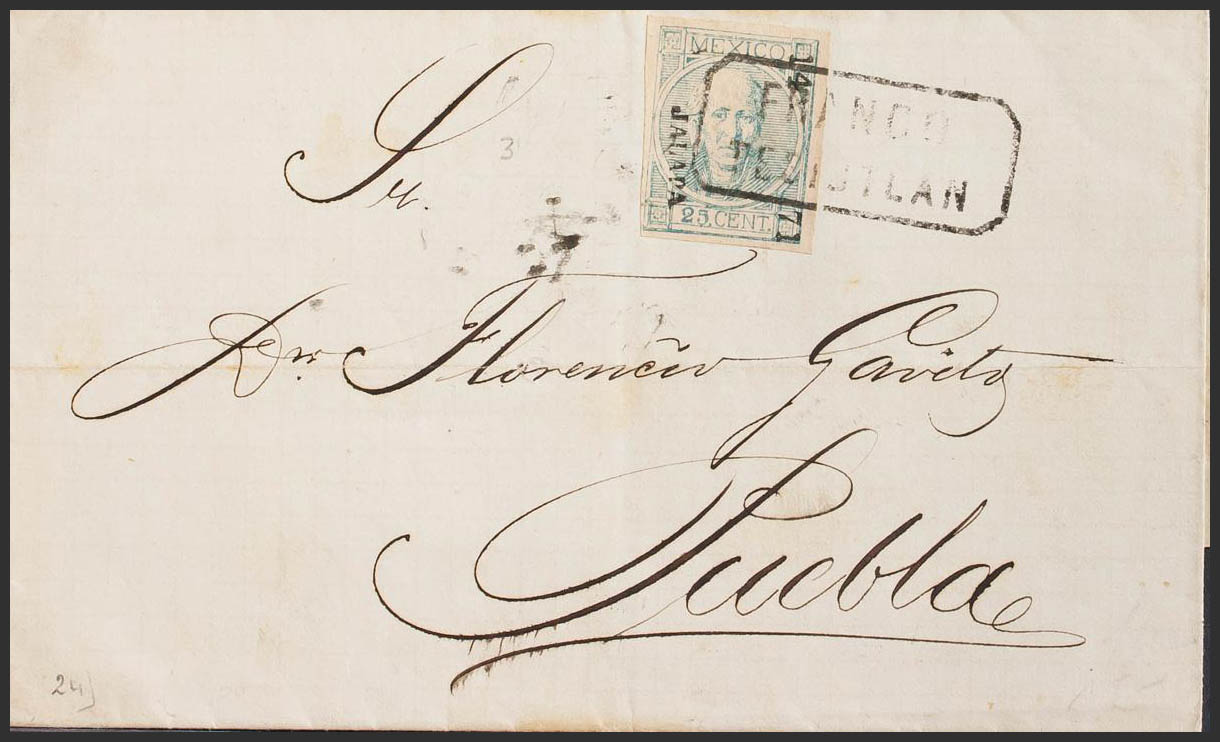 MEXICO
14
JALAPA
25 CENT.
71
FRANCO
Sr.
Dn. Florencio Gavito
Puebla
24